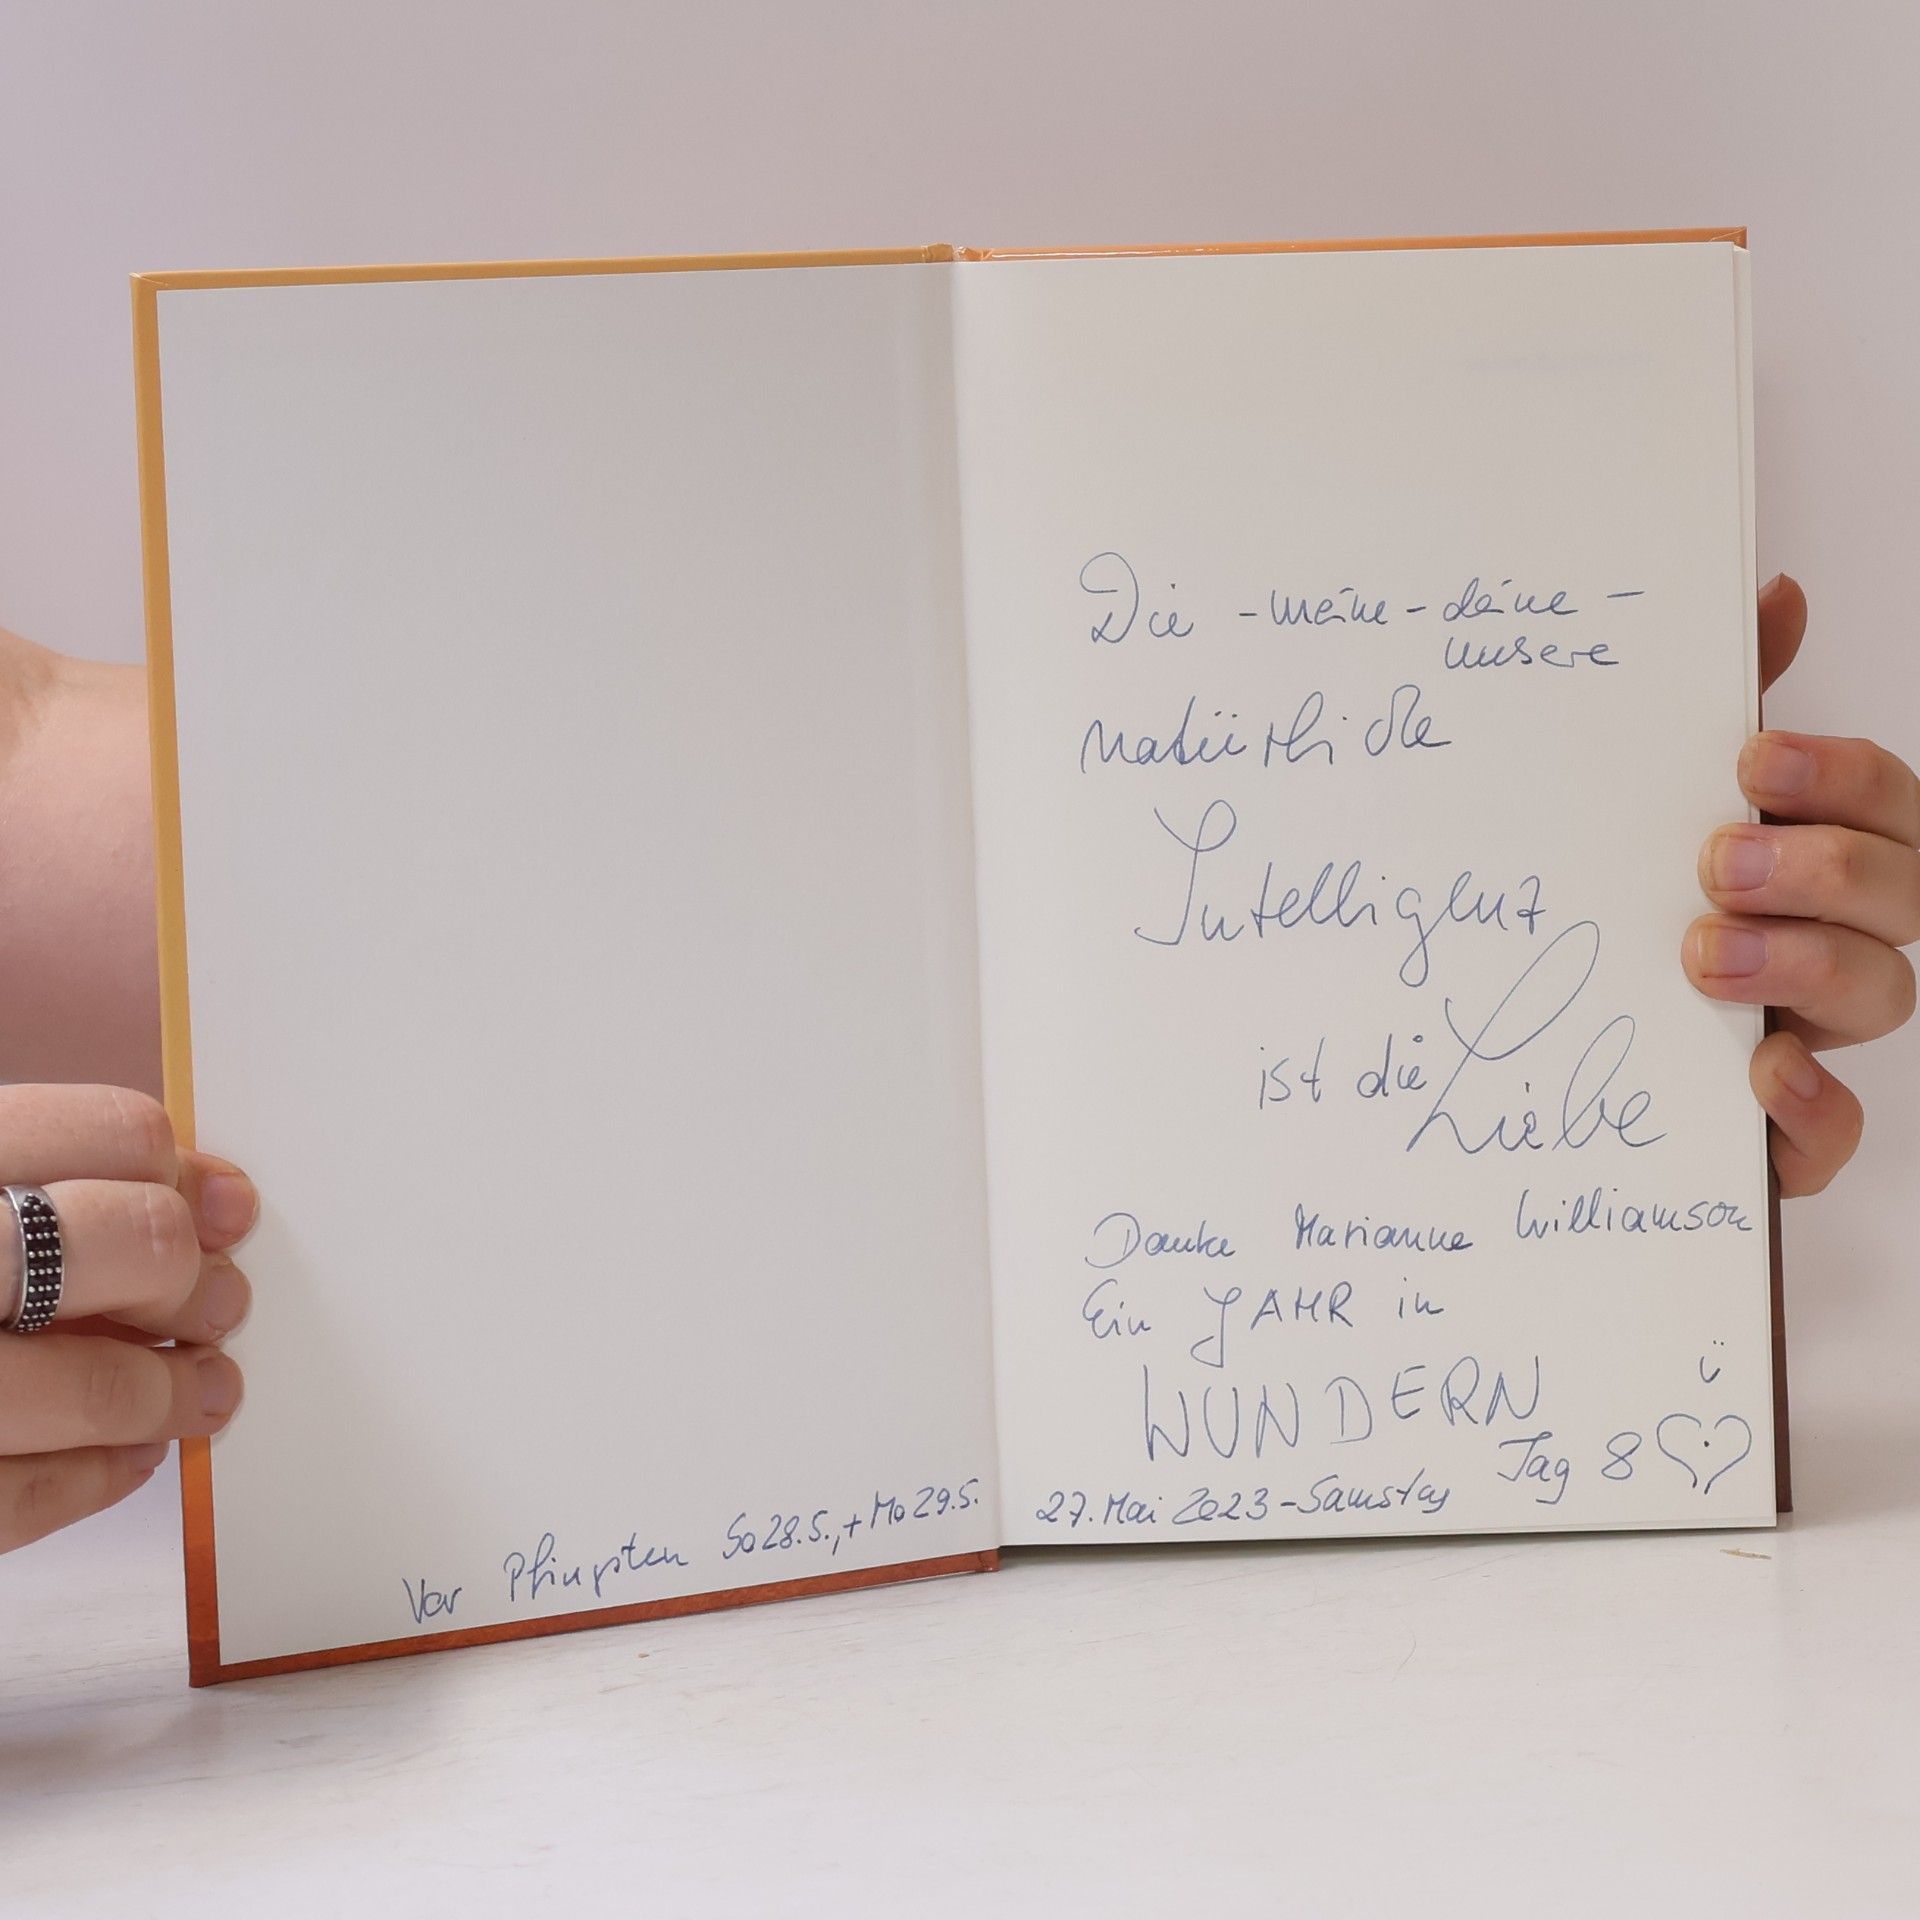 Die - meine - deine -
unsere
natürliche
Intelligenz
ist die Liebe
Danke Marianne Williamson
Ein JAHR in
WUNDERN
Tag 8
27. Mai 2023 - Samstag
Vor Pfingsten So 28.5., + Mo 29.5.